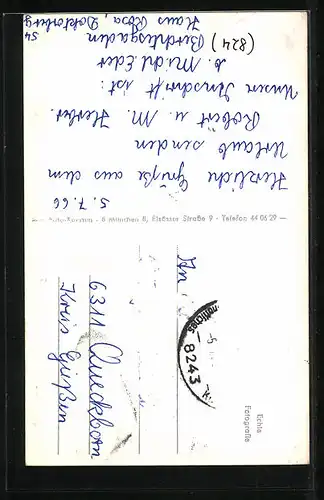 5.7.66
Herzliche Grüße aus dem
Urlaub senden
Robert u. M. Herber.
Unsere Anschrift ist:
b. Michl. Eder
(824) Berchtesgaden
Haus Rosa, Doktorberg
54
8 München 8, Elsässer Straße 9 - Telefon 44 06 29
Echte
Fotografie
An
6311 Queckborn
Kreis Gießen
8243